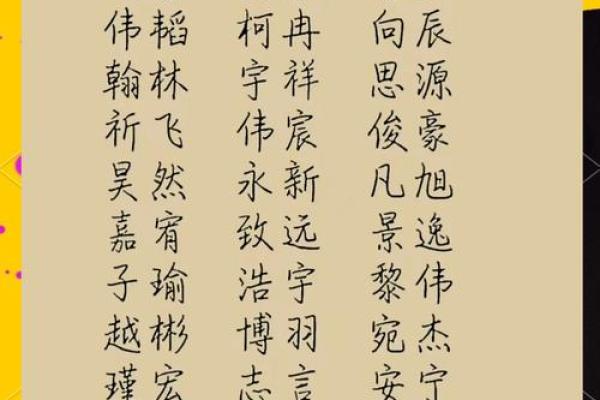 伟韬 柯冉 向辰
翰林 宇祥 思源
祈飞 伟宸 俊豪
昊然 永新 凡旭
嘉宥 致远 景逸
子瑜 浩宇 黎伟
越彬 博羽 宛杰
瑾宏 志言 安宁